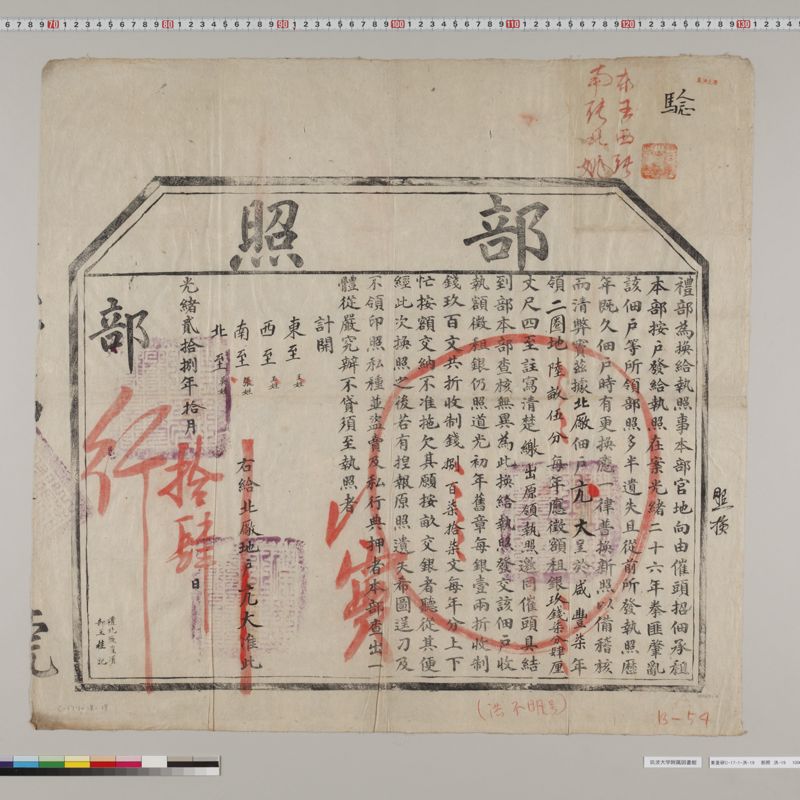 驗
照換
部照
禮部為換給執照事本部官地向由催頭招佃承租
本部按戶發給執照在案光緒二十六年拳匪肇亂
該佃戶等所領部照多半遺失且從前所發執照歷
年既久佃戶時有更換應一律普換新照以備稽核
而清弊竇茲據北廠佃戶亢大呈於咸豐柒年
領二圈地陸畝伍分每年應徵額租銀玖錢柒分肆厘
丈尺四至註寫清楚繳出原領執照邀同催頭具結
到部本部查核無異為此換給執照發交該佃戶收
執額徵租銀仍照道光初年舊章每銀壹兩折收制
錢玖百文共折收制錢捌百柒拾柒文每年分上下
忙按額交納不准拖欠其願按畝交銀者聽從其便
經此次換照之後若有捏報原照遺失希圖逞刁及
不領印照私種並盜賣及私行典押者本部查出一
體從嚴究辦不貸須至執照者
計開
東至
西至
南至 張姓
北至
右給北廠地戶亢大准此
光緒貳拾捌年拾月拾肆日
部
行
B-54
筑波大学附属図書館